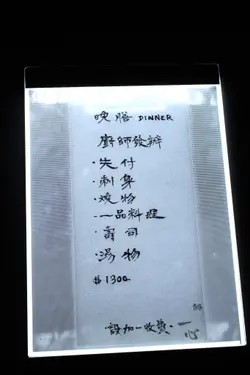 晚膳 DINNER
廚師發辦
·先付
·刺身
·燒物
·一品料理
·壽司
·湯物
$1300
設加一收費